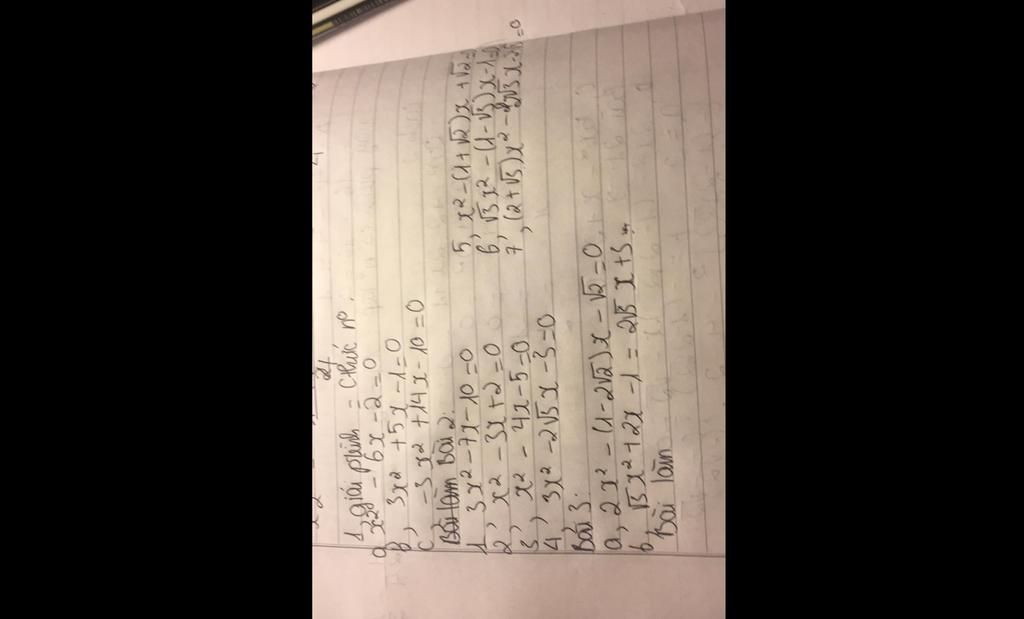 1, giải phình = Cthức n⁰.
a, x² - 6x - 2 = 0
b, 3x² + 5x - 1 = 0
c, -3x² + 14x - 10 = 0
Bài 2:
1, 3x² - 7x - 10 = 0
2, x² - 3x + 2 = 0
3, x² - 4x - 5 = 0
4, 3x² - 2√3x - 3 = 0
5, x² - (1 + √2)x + √2 = 0
6, √3x² - (1 - √3)x - 1 = 0
7, (2 + √3)x² - 2√3x = 0
Bài 3:
a, 2x² - (1 - 2√2)x - √2 = 0
b, √3x² + 2x - 1 = 2√3x + 3
Bài làm